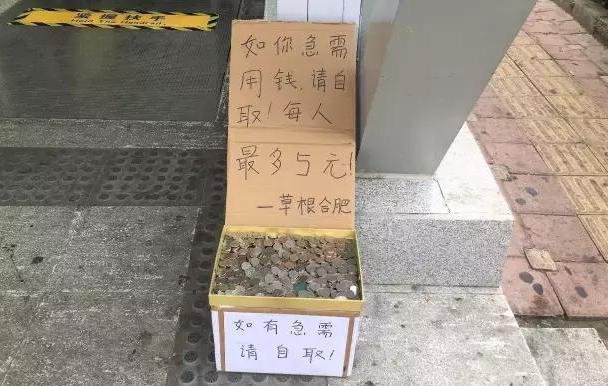 紧握扶手
Hold The Handrail
如你急需
用钱,请自
取!每人
最多5元!
一草根合肥
如有急需
请自取!